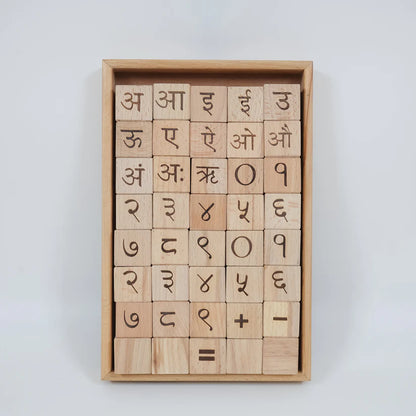 अ आ इ ई उ
ऊ ए ऐ ओ औ
अं अः ऋ ० १
२ ३ ४ ५ ६
७ ८ ९ ० १
२ ३ ४ ५ ६
७ ८ ९ + -
=